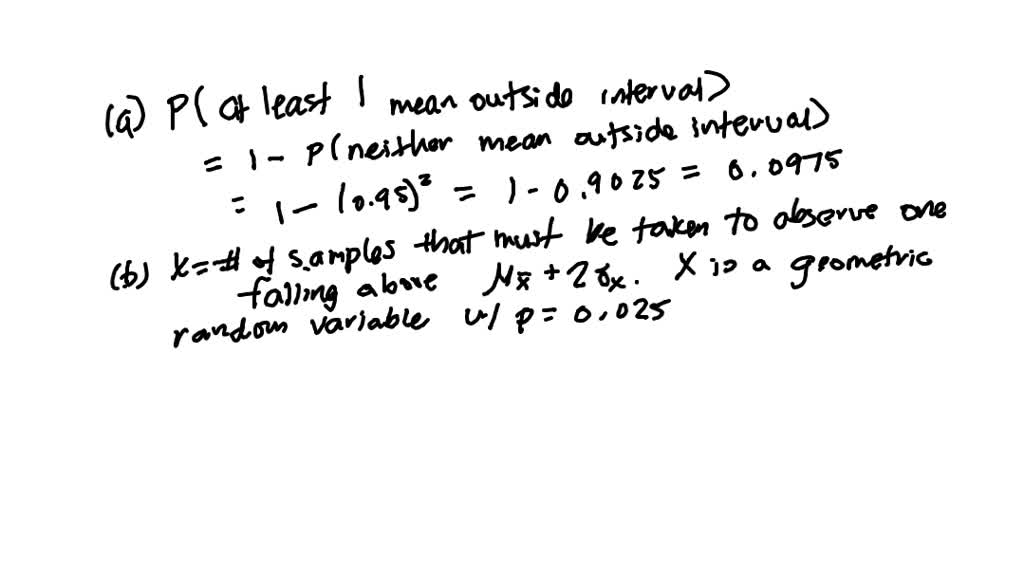 (a) P( at least 1 mean outside interval)
= 1 - P(neither mean outside interval)
= 1 - (0.95)² = 1 - 0.9025 = 0.0975
(b) X = # of samples that must be taken to observe one
falling above μx̄ + 2σx. X is a geometric
random variable w/ p = 0.025